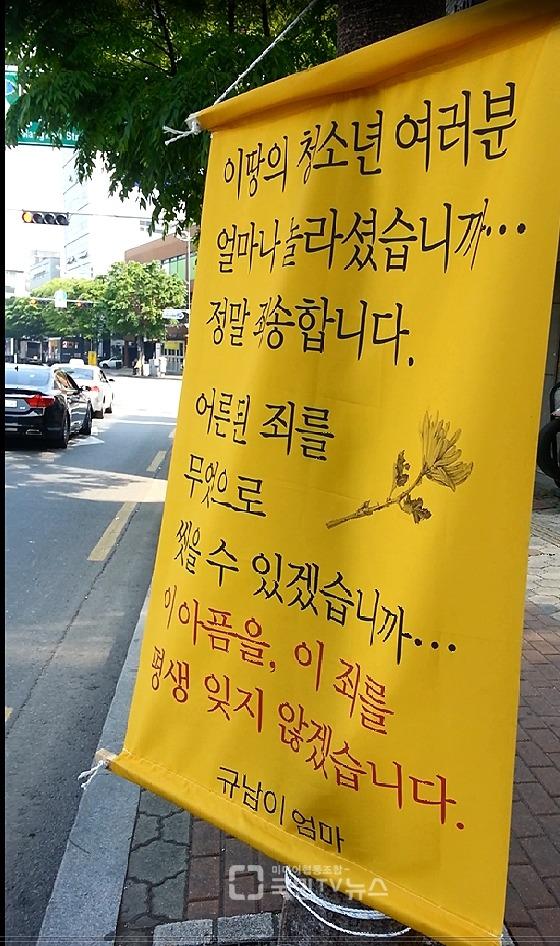 이땅의 청소년 여러분
얼마나 놀라셨습니까...
정말 죄송합니다.
어른된 죄를
무엇으로
씻을 수 있겠습니까...
이 아픔을, 이 죄를
평생 잊지 않겠습니다.
규남이 엄마
미디어협동조합
국민TV뉴스